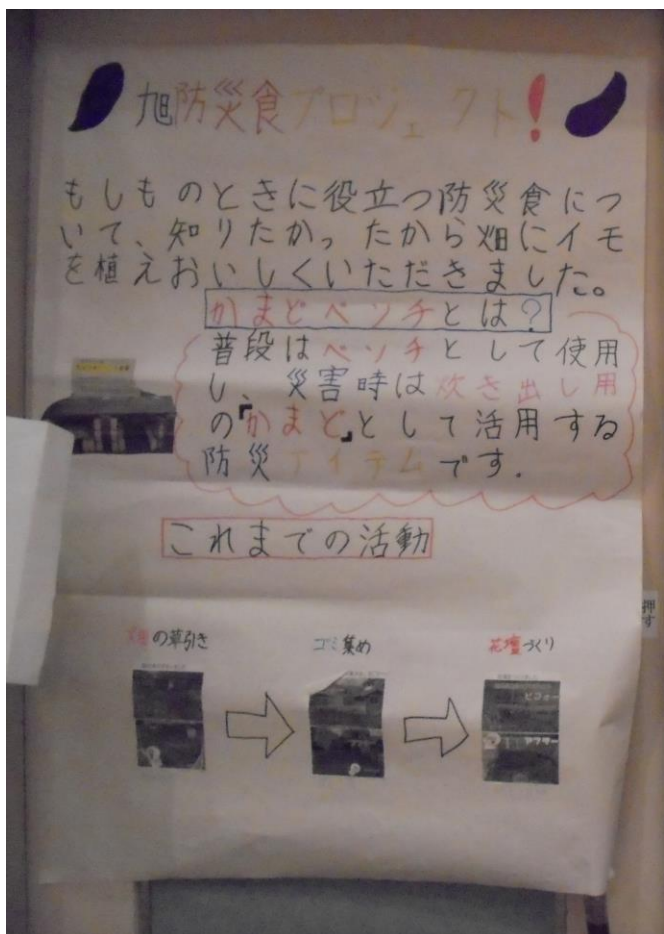 旭防災食プロジェクト!
もしものときに役立つ防災食につ
いて、知りたかったから畑にイモ
を植えおいしくいただきました。
かまどベンチとは?
普段はベンチとして使用
し、災害時は炊き出し用
の「かまど」として活用する
防災アイテムです.
これまでの活動
畑の草引き
ゴミ集め
花壇づくり
ビフォー
アフター
押す